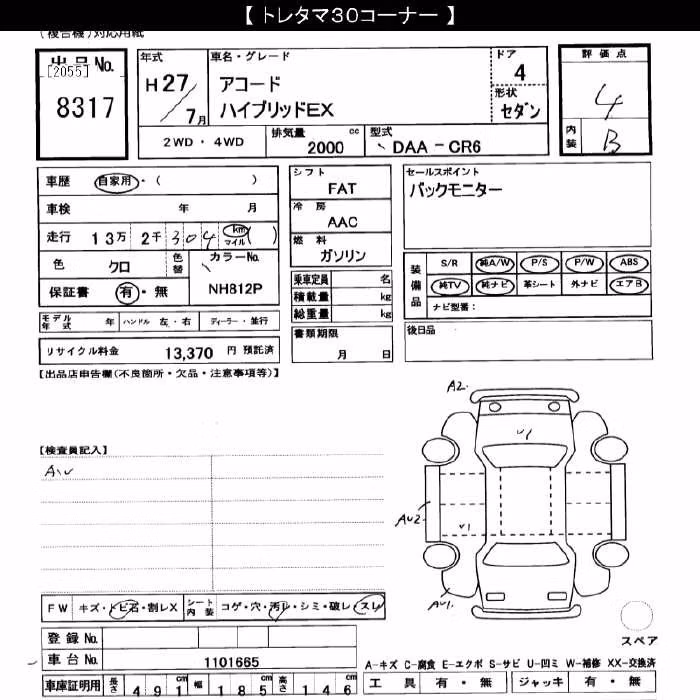 【 トレタマ30コーナー 】
(複合機)対応用紙
出品No.
[2055]
8317
年式
H27/7月
車名・グレード
アコード
ハイブリッドEX
ドア
4
形状
セダン
評価点
4
内装
B
2WD・4WD
排気量
2000 cc
型式
DAA-CR6
車歴 自家用・( )
車検 年 月
走行 13万2千304 km マイル ( )
色 クロ
色替
カラーNo.
NH812P
保証書 有・無
シフト
FAT
冷房
AAC
燃料
ガソリン
乗車定員 名
積載量 kg
総重量 kg
書類期限
月 日
セールスポイント
バックモニター
装備品
S/R 純A/W P/S P/W ABS
純TV 純ナビ 革シート 外ナビ エアB
ナビ型番:
後日品
モデル年式 年 ハンドル 左・右 ディーラー・並行
リサイクル料金 13,370 円 預託済
【出品店申告欄(不良箇所・欠品・注意事項等)】
【検査員記入】
AU
A2
U1
AU2
U1
AU1
FW キズ・トビ石・割レX シート内装 コゲ・穴・汚レ・シミ・破レ・スレ
登録No.
車台No. 1101665
車庫証明用 長さ 491 幅 185 高さ 146
スペア
A-キズ C-腐食 E-エクボ S-サビ U-凹ミ W-補修 XX-交換済
工具 有・無 ジャッキ 有・無